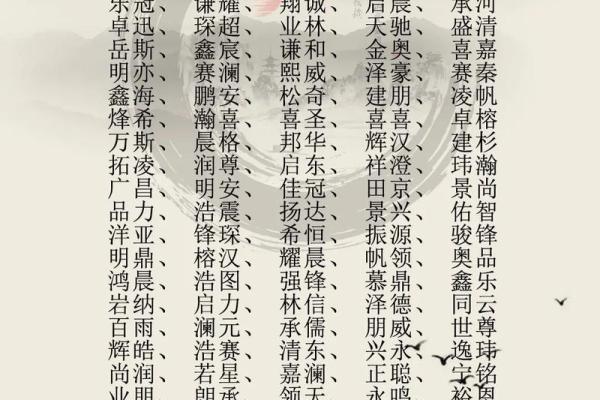 乐冠、谦耀、翔诚、启晨、承河
卓迅、琛超、业林、天驰、盛清
岳斯、鑫宸、谦和、金奥、喜嘉
明亦、赛澜、熙威、泽豪、赛秦
鑫海、鹏安、松奇、建朋、凌帆
烽希、瀚喜、喜圣、辉喜、卓榕
万斯、晨格、邦华、辉汉、建杉
拓凌、润尊、启东、祥澄、玮瀚
广昌、明安、佳冠、田京、景尚
品力、浩震、扬达、景兴、佑智
洋亚、锋琛、希恒、振源、骏锋
明鼎、榕汉、耀晨、帆领、奥品
鸿晨、浩图、强锋、慕鼎、鑫乐
岩纳、启力、林信、泽德、同云
百雨、澜元、承儒、朋威、世尊
辉皓、浩赛、清东、兴永、逸玮
尚润、若星、嘉澜、正聪、宁铭
业朋、朗承、领天、永鸣、裕恩